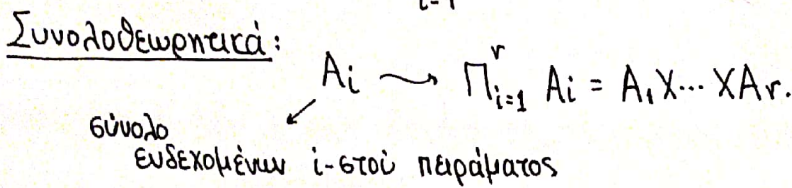 i=1
Συνολοθεωρητικά:
A_i ⟿ ∏_{i=1}^{r} A_i = A_1 X ⋯ X A_r.
σύνολο
ενδεχομένων i-στού πειράματος